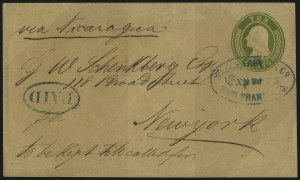 via Nicaragua
TEN
G W Schenkberg Esq
118 Broad Street
PAID
New york
to be kept till called for